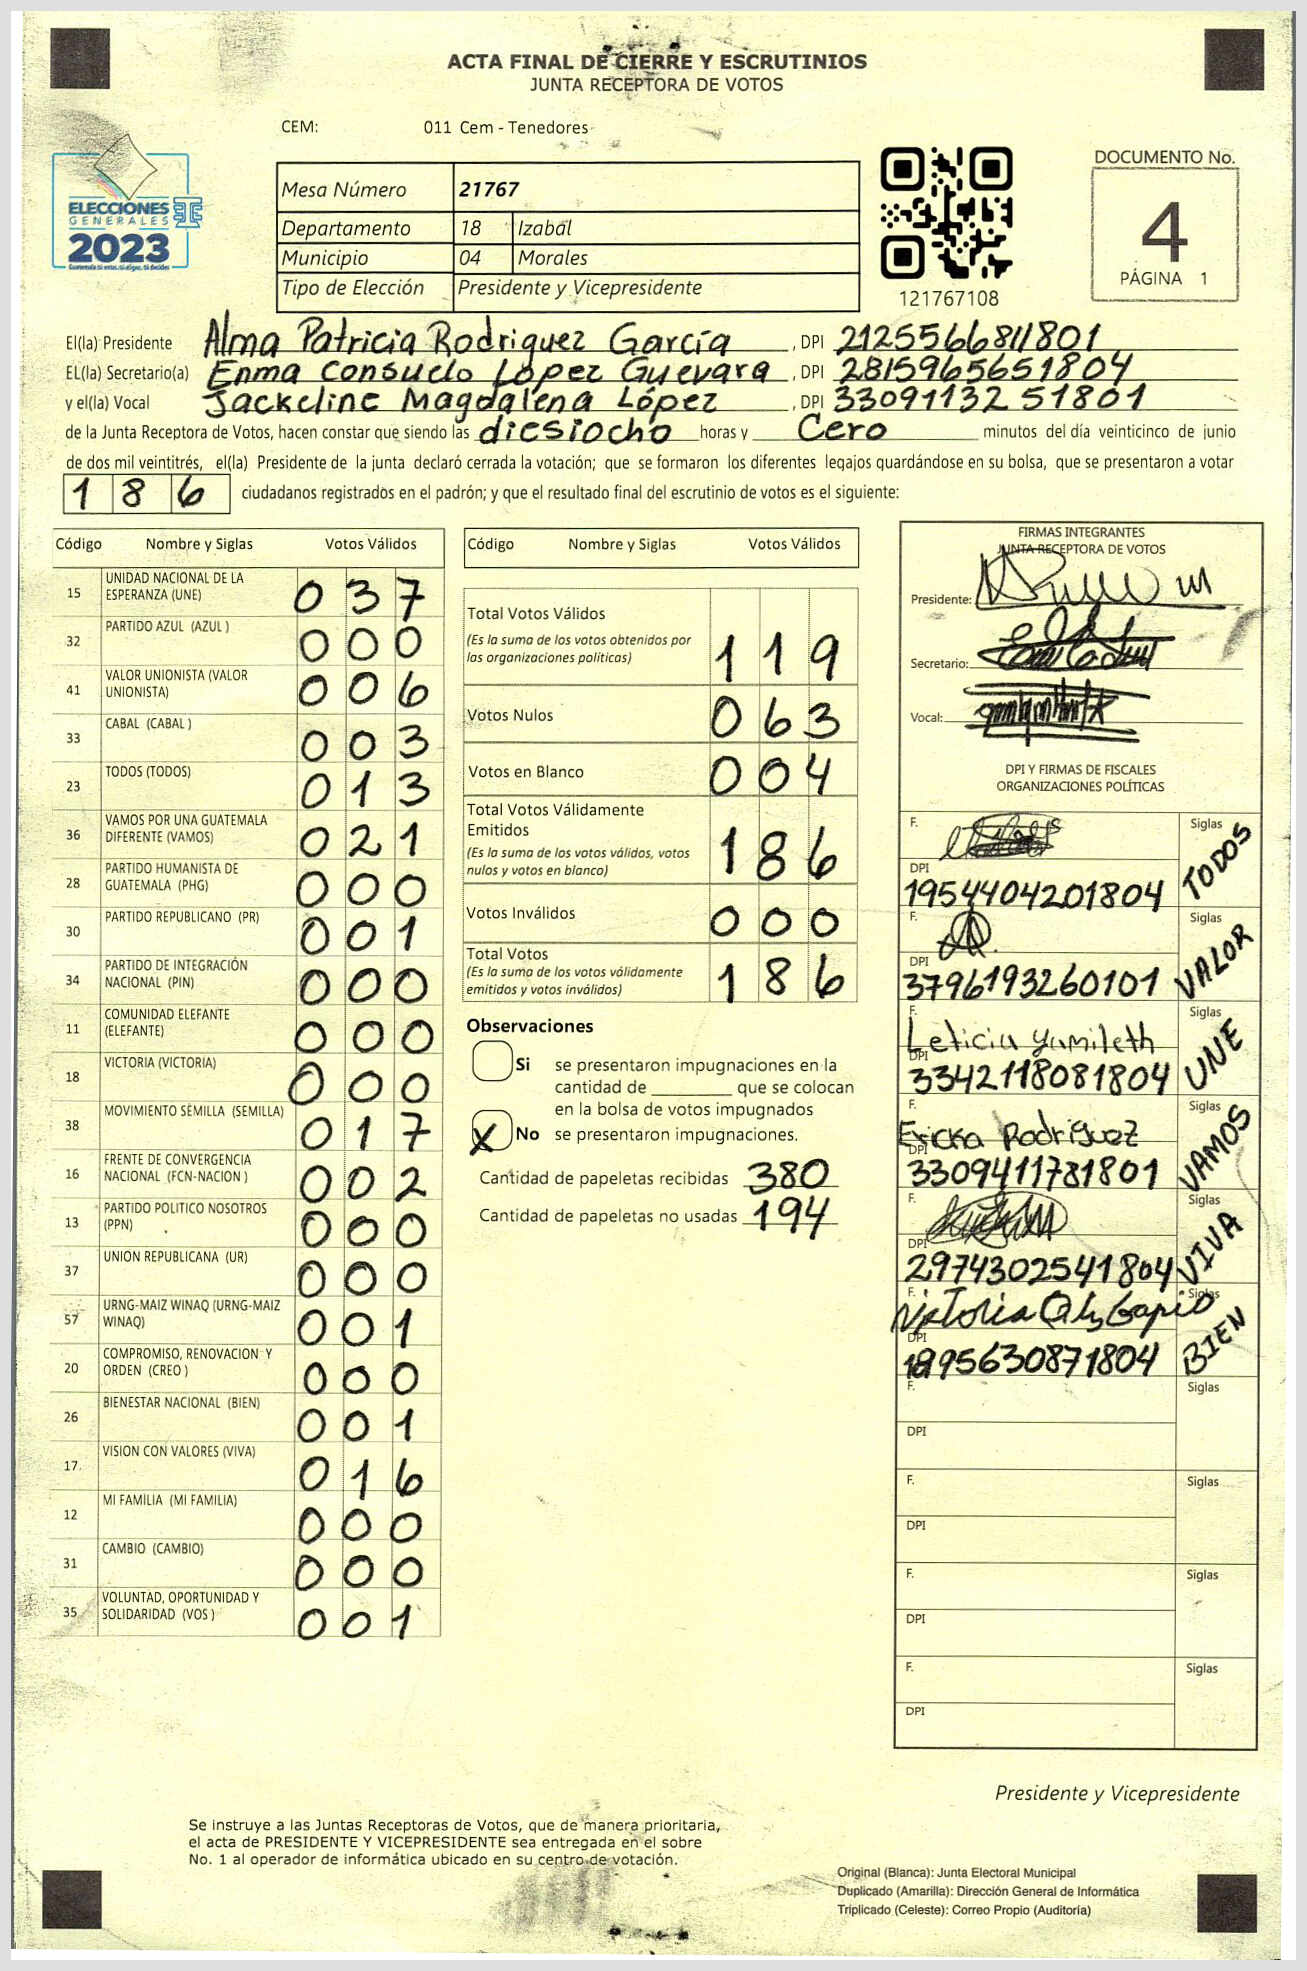 ACTA FINAL DE CIERRE Y ESCRUTINIOS
JUNTA RECEPTORA DE VOTOS
CEM: 011 Cem - Tenedores
ELECCIONES
GENERALES
2023
Mesa Número 21767
Departamento 18 Izabal
Municipio 04 Morales
Tipo de Elección Presidente y Vicepresidente
121767108
DOCUMENTO No.
4
PÁGINA 1
El(la) Presidente Alma Patricia Rodriguez García , DPI 2125566811801
EL(la) Secretario(a) Enma Consuelo López Guevara , DPI 2815965651804
y el(la) Vocal Jackeline Magdalena López , DPI 3309113251801
de la Junta Receptora de Votos, hacen constar que siendo las diesiocho horas y Cero minutos del día veinticinco de junio
de dos mil veintitrés, el(la) Presidente de la junta declaró cerrada la votación; que se formaron los diferentes legajos guardándose en su bolsa, que se presentaron a votar
186 ciudadanos registrados en el padrón; y que el resultado final del escrutinio de votos es el siguiente:
Código Nombre y Siglas Votos Válidos
15 UNIDAD NACIONAL DE LA ESPERANZA (UNE) 037
32 PARTIDO AZUL (AZUL ) 000
41 VALOR UNIONISTA (VALOR UNIONISTA) 006
33 CABAL (CABAL ) 003
23 TODOS (TODOS) 013
36 VAMOS POR UNA GUATEMALA DIFERENTE (VAMOS) 021
28 PARTIDO HUMANISTA DE GUATEMALA (PHG) 000
30 PARTIDO REPUBLICANO (PR) 001
34 PARTIDO DE INTEGRACIÓN NACIONAL (PIN) 000
11 COMUNIDAD ELEFANTE (ELEFANTE) 000
18 VICTORIA (VICTORIA) 000
38 MOVIMIENTO SEMILLA (SEMILLA) 017
16 FRENTE DE CONVERGENCIA NACIONAL (FCN-NACION ) 002
13 PARTIDO POLITICO NOSOTROS (PPN) 000
37 UNION REPUBLICANA (UR) 000
57 URNG-MAIZ WINAQ (URNG-MAIZ WINAQ) 001
20 COMPROMISO, RENOVACION Y ORDEN (CREO ) 000
26 BIENESTAR NACIONAL (BIEN) 001
17 VISION CON VALORES (VIVA) 016
12 MI FAMILIA (MI FAMILIA) 000
31 CAMBIO (CAMBIO) 000
35 VOLUNTAD, OPORTUNIDAD Y SOLIDARIDAD (VOS ) 001
Código Nombre y Siglas Votos Válidos
Total Votos Válidos
(Es la suma de los votos obtenidos por
las organizaciones políticas) 119
Votos Nulos 063
Votos en Blanco 004
Total Votos Válidamente
Emitidos
(Es la suma de los votos válidos, votos
nulos y votos en blanco) 186
Votos Inválidos 000
Total Votos
(Es la suma de los votos válidamente
emitidos y votos inválidos) 186
Observaciones
Si se presentaron impugnaciones en la
cantidad de ________ que se colocan
en la bolsa de votos impugnados
X No se presentaron impugnaciones.
Cantidad de papeletas recibidas 380
Cantidad de papeletas no usadas 194
FIRMAS INTEGRANTES
JUNTA RECEPTORA DE VOTOS
Presidente:
Secretario:
Vocal:
DPI Y FIRMAS DE FISCALES
ORGANIZACIONES POLÍTICAS
F. Siglas TODOS
DPI 1954404201804
F. Siglas VALOR
DPI 3796193260101
F. Leticia Yamileth Siglas UNE
DPI 3342118081804
F. Ericka Rodriguez Siglas VAMOS
DPI 3309411781801
F. Siglas VIVA
DPI 2974302541804
F. Siglas BIEN
DPI 1995630871804
F. Siglas
DPI
F. Siglas
DPI
F. Siglas
DPI
F. Siglas
DPI
Presidente y Vicepresidente
Se instruye a las Juntas Receptoras de Votos, que de manera prioritaria,
el acta de PRESIDENTE Y VICEPRESIDENTE sea entregada en el sobre
No. 1 al operador de informática ubicado en su centro de votación.
Original (Blanca): Junta Electoral Municipal
Duplicado (Amarilla): Dirección General de Informática
Triplicado (Celeste): Correo Propio (Auditoría)